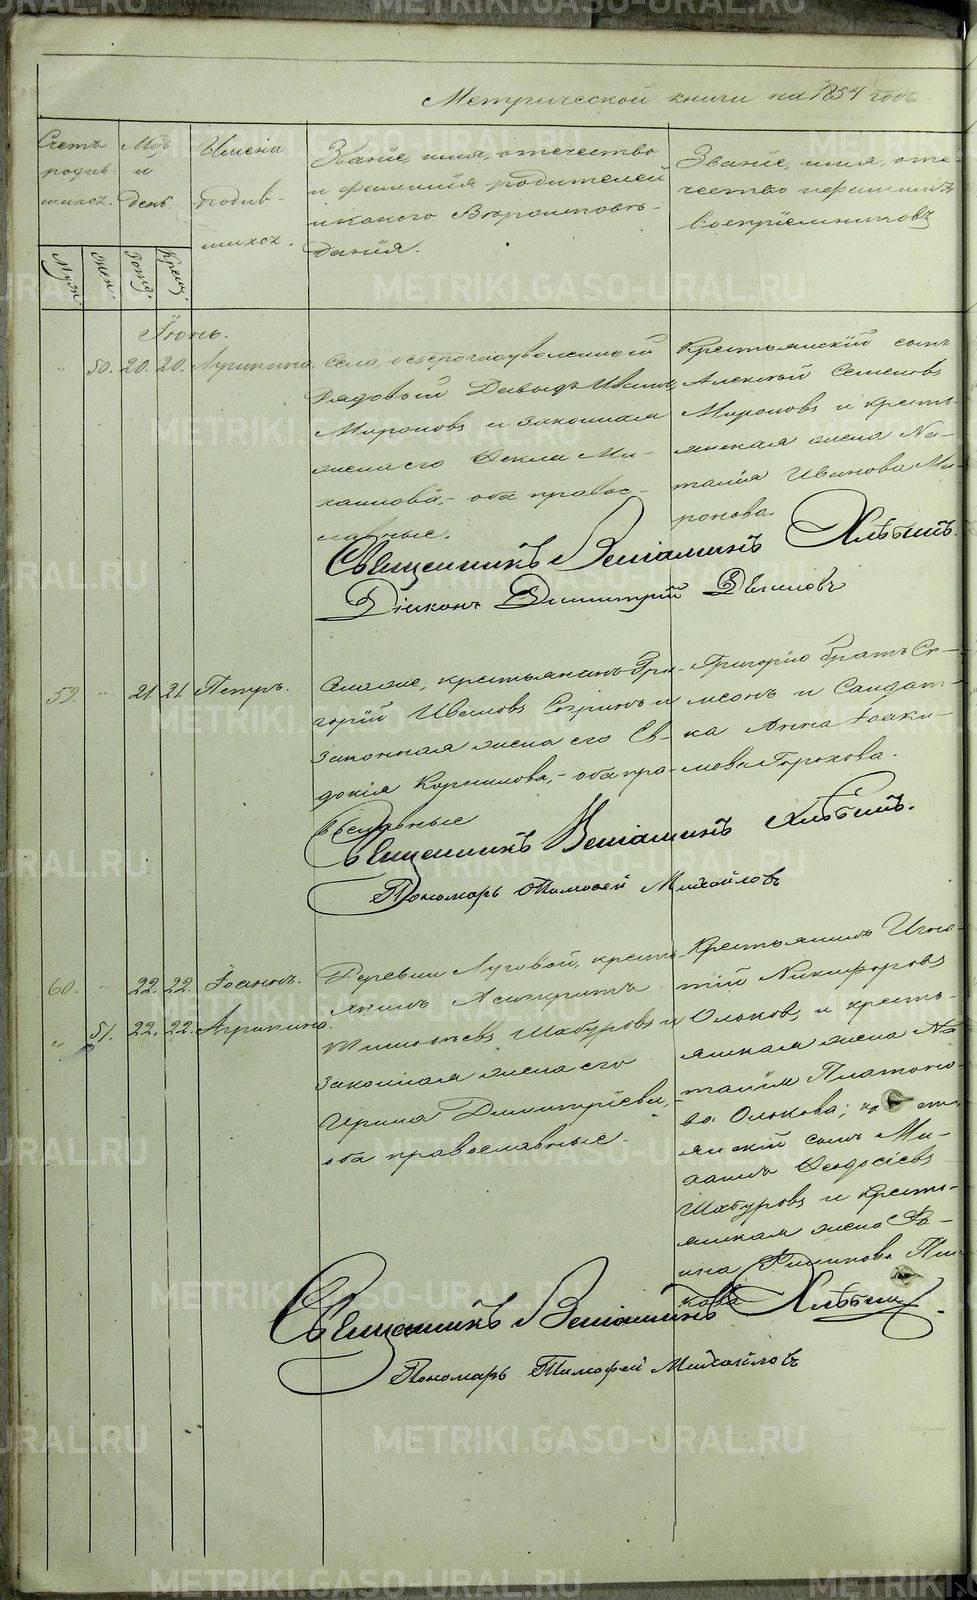 Метрической книги на 1854 годъ
Счетъ родив-шихся.
Муж.
жен.
Мцъ и день.
Рожд.
Крещ.
Имена родив-шихся.
Званіе, имя, отечество
и фамилія родителей
и какого Вѣроисповѣ-
данія.
Званіе, имя, оте-
чество и фамилія
Воспріемниковъ
Іюнь.
" 50. 20. 20. Агрипина
Села, безсрочноуволенный
рядовый Давыдъ Иванов
Мироновъ и законная
жена его Ѳекла Ми-
хаилова, - оба правос-
лавные.
Крестьянскій сынъ
Алексѣй Семеновъ
Мироновъ и кресть-
янская жена На-
талія Иванова Ми-
ронова.
Священникъ Веніаминъ Хлѣбинъ.
Діаконъ Димитрій
59. " 21. 21. Петръ.
Села же, крестьянинъ Гри-
горій Ивановъ и
законная жена его Ев-
докія Корнилова, - оба пра-
вославные
Григорію братъ Си-
меонъ и Салдат-
ка Анна Іоаки-
мова Горохова.
Священникъ Веніаминъ Хлѣбинъ.
Пономарь Тимоѳей Михайловъ
60. " 22. 22. Іоаннъ.
" 51. 22. 22. Агрипина.
Деревни Луговой, кресть-
янинъ Асинкритъ
Тимоѳеевъ Шабуровъ и
законная жена его
Ирина Димитріева, -
оба православные.
Крестьянинъ Игна-
тій Никифоровъ
Ольковъ, и кресть-
янская жена На-
талія Платоно-
ва Олькова;
янскій сынъ Ми-
хаилъ Ѳеодосіевъ
Шабуровъ и кресть-
янская жена
Священникъ Веніаминъ Хлѣбинъ.
Пономарь Тимоѳей Михайловъ
METRIKI.GASO-URAL.RU